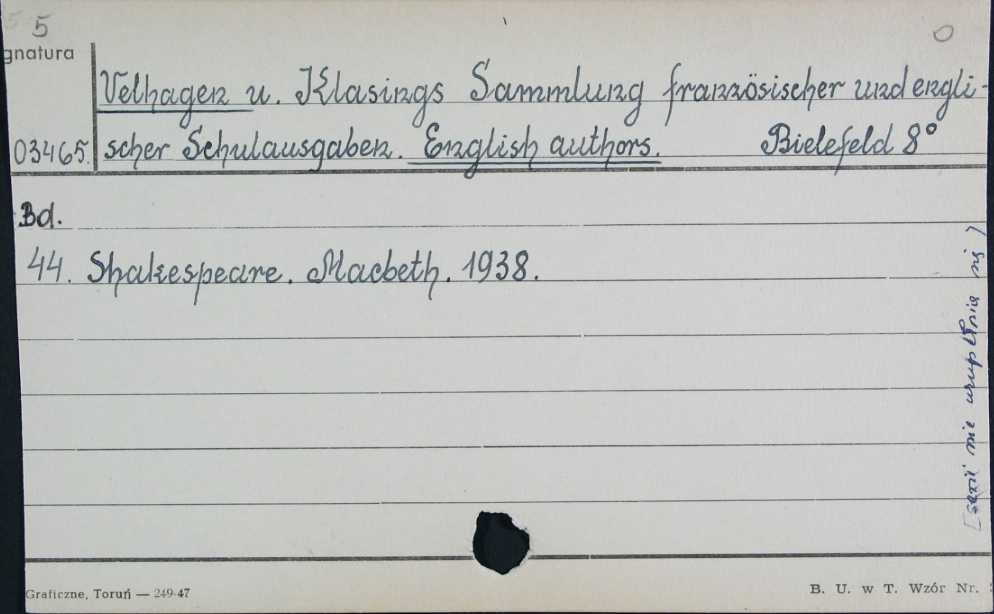 5
gnatura
Velhagen u. Klasings Sammlung französischer und engli-
03465. scher Schulausgaben. English authors. Bielefeld 8°
Bd.
44. Shakespeare. Macbeth. 1938.
[serii nie uzupełnia się)
Graficzne, Toruń — 249-47
B. U. w T. Wzór Nr.